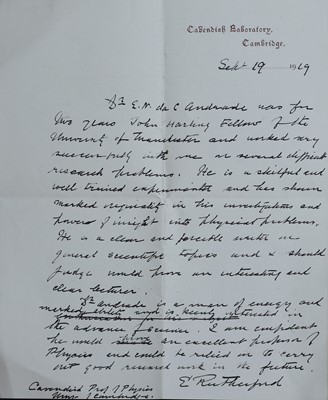 Cavendish Laboratory,
Cambridge.
Sept 19 1919
Dr E. N. da C Andrade was for
two years John Harling Fellow of the
University of Manchester and worked very
successfully with me on several different
research problems. He is a skilful and
well trained experimenter and has shown
marked originality in his investigations and
powers of insight into physical problems.
He is a clear and forcible writer on
general scientific topics and I should
judge would prove an interesting and
clear lecturer.
Dr Andrade is a man of energy and
marked ability and is keenly interested in
the advance of science. I am confident
he would prove an excellent professor of
Physics and could be relied on to carry
out good research work in the future.
E Rutherford
Cavendish Prof of Physics
Univ Cambridge.